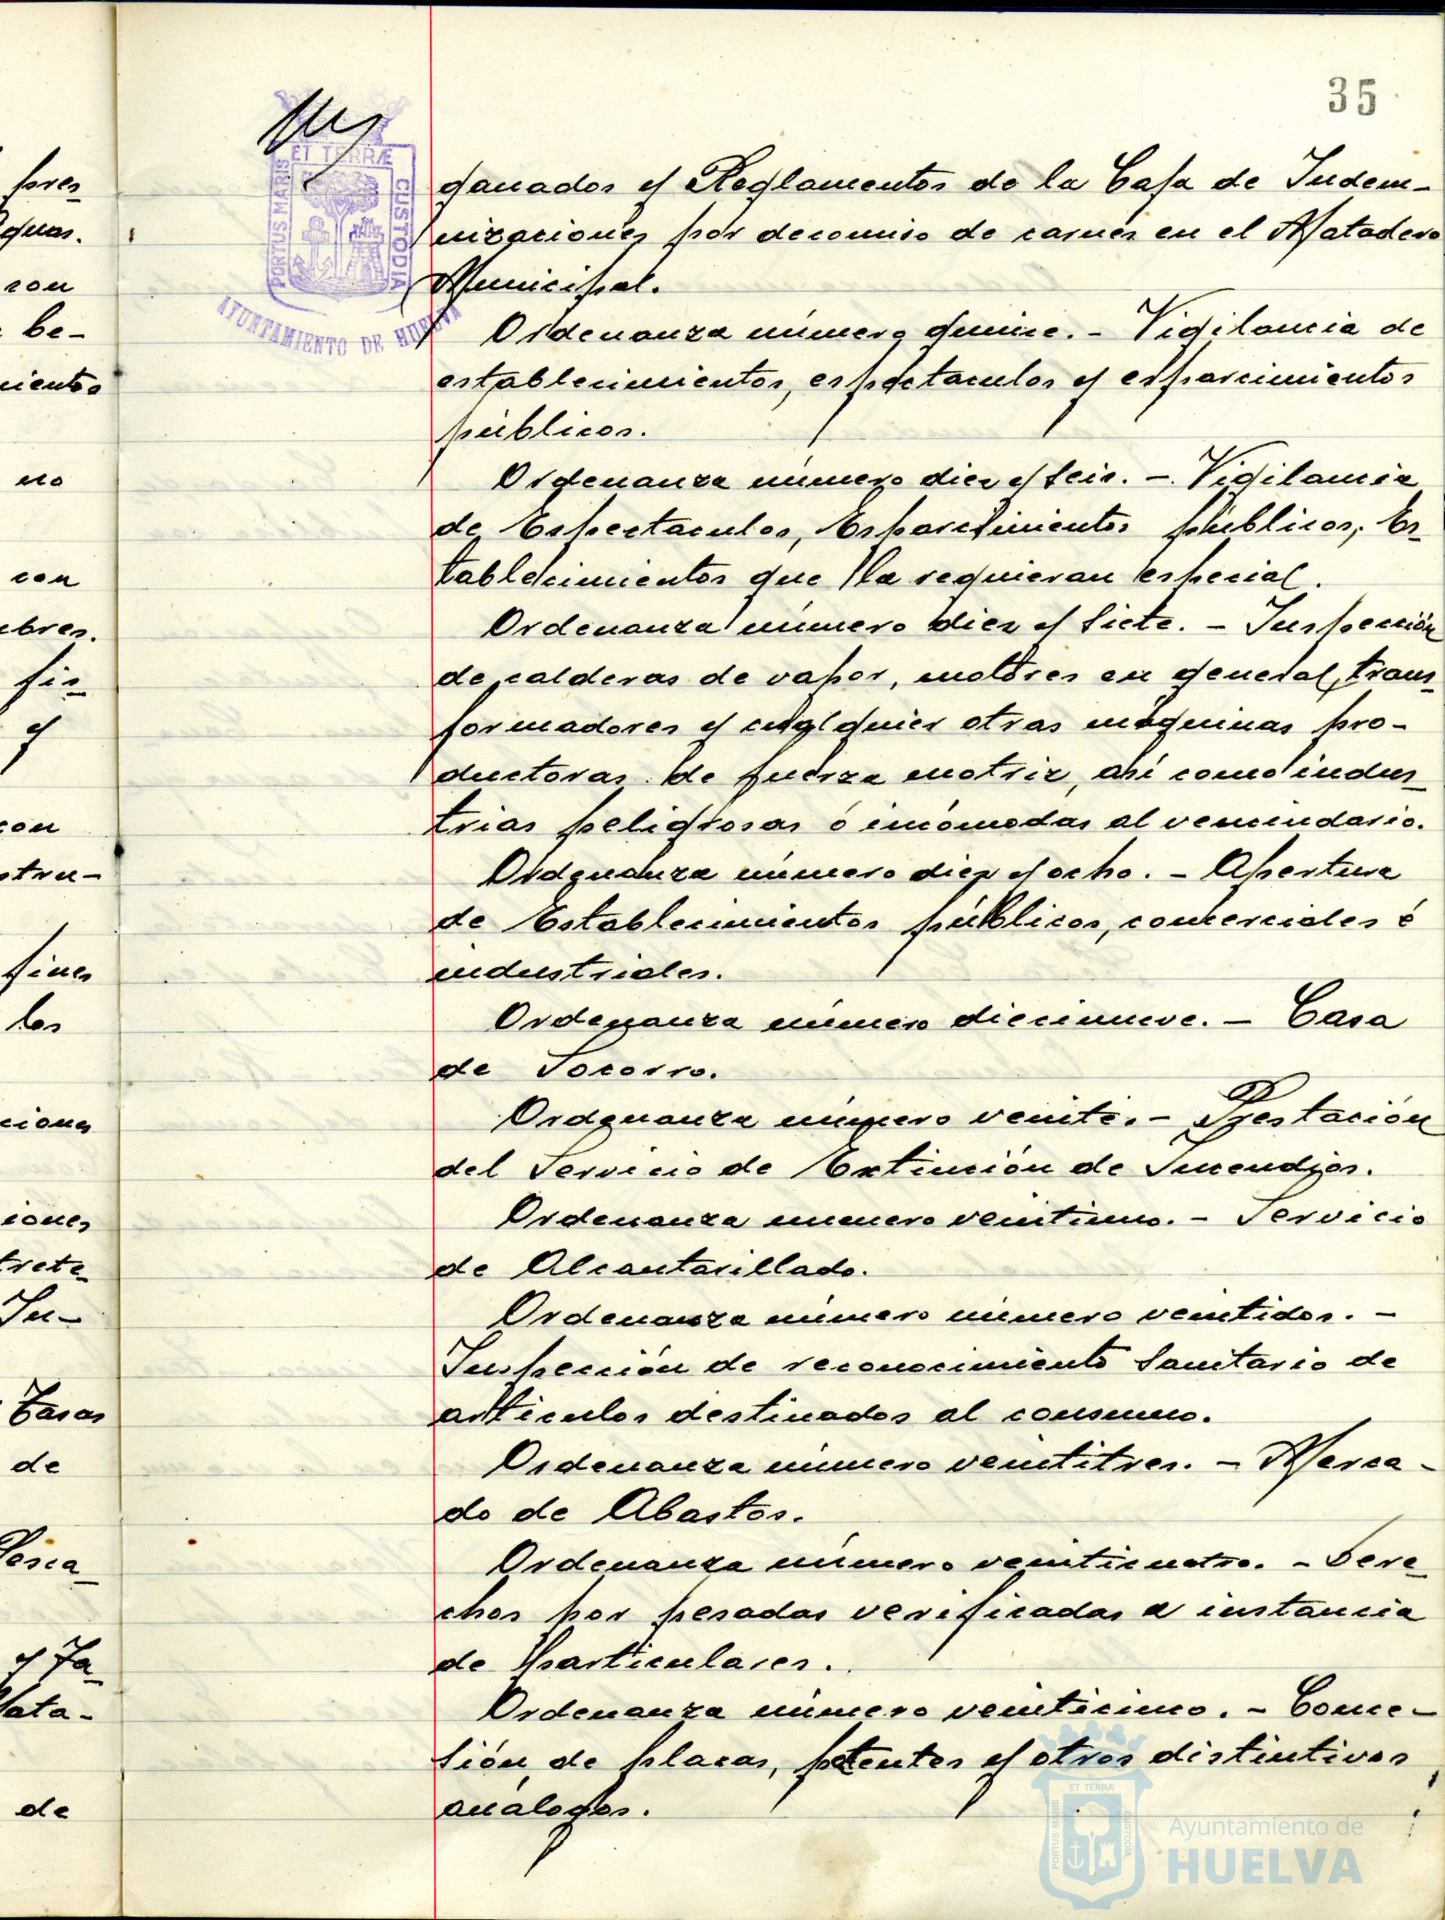 35
ET TERRÆ
PORTUS MARIS
CUSTODIA
AYUNTAMIENTO DE HUELVA
ganados y Reglamentos de la Caja de Indem-
nizaciones por decomiso de carnes en el Matadero
Municipal.
Ordenanza número quince. - Vigilancia de
establecimientos, espectaculos y esparcimientos
públicos.
Ordenanza número diez y seis. - Vigilancia
de Espectaculos, Esparcimientos públicos, Es-
tablecimientos que la requieran especial.
Ordenanza número diez y siete. - Inspección
de calderas de vapor, motores en general, trans-
formadores y cualquier otras máquinas pro-
ductoras de fuerza motriz, así como indus-
trias peligrosas ó incómodas al vecindario.
Ordenanza número diez y ocho. - Apertura
de Establecimientos públicos, comerciales é
industriales.
Ordenanza número diecinueve. - Casa
de Socorro.
Ordenanza número veinte. - Prestación
del Servicio de Extinción de Incendios.
Ordenanza numero veintiuno. - Servicio
de Alcantarillado.
Ordenanza número número veintidos. -
Inspección de reconocimiento Sanitario de
artículos destinados al consumo.
Ordenanza número veintitres. - Merca-
do de Abastos.
Ordenanza número veinticuatro. - Dere-
chos por pesadas verificadas a instancia
de particulares.
Ordenanza número veinticinco. - Conce-
sión de placas, patentes y otros distintivos
análogos.
pres-
con
be-
no
con
fis-
y
fines
los
ciones
iones
trete-
In-
Tasas
de
y Ja-
Mata-
de
ET TERRÆ
PORTUS MARIS
CUSTODIA
Ayuntamiento de
HUELVA